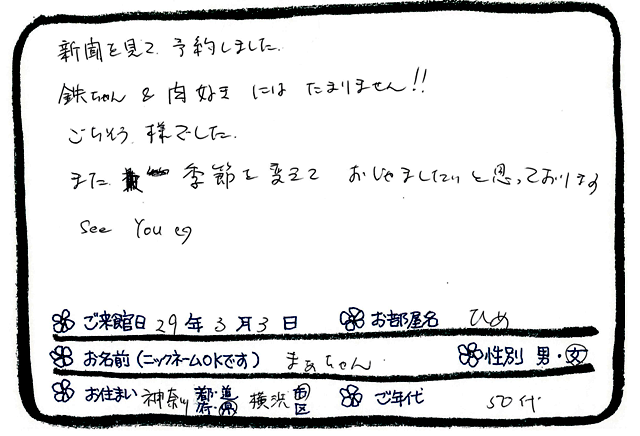 新聞を見て予約しました。
鉄ちゃん & 肉好き には たまりません!!
ごちそう様でした。
また 季節を変えて おじゃましたいと思っております
See You
ご来館日 29年3月3日 お部屋名 ひめ
お名前(ニックネームOKです) まぁちゃん 性別 男・女
お住まい 神奈川 都・道・府・県 横浜 市・区 ご年代 50代